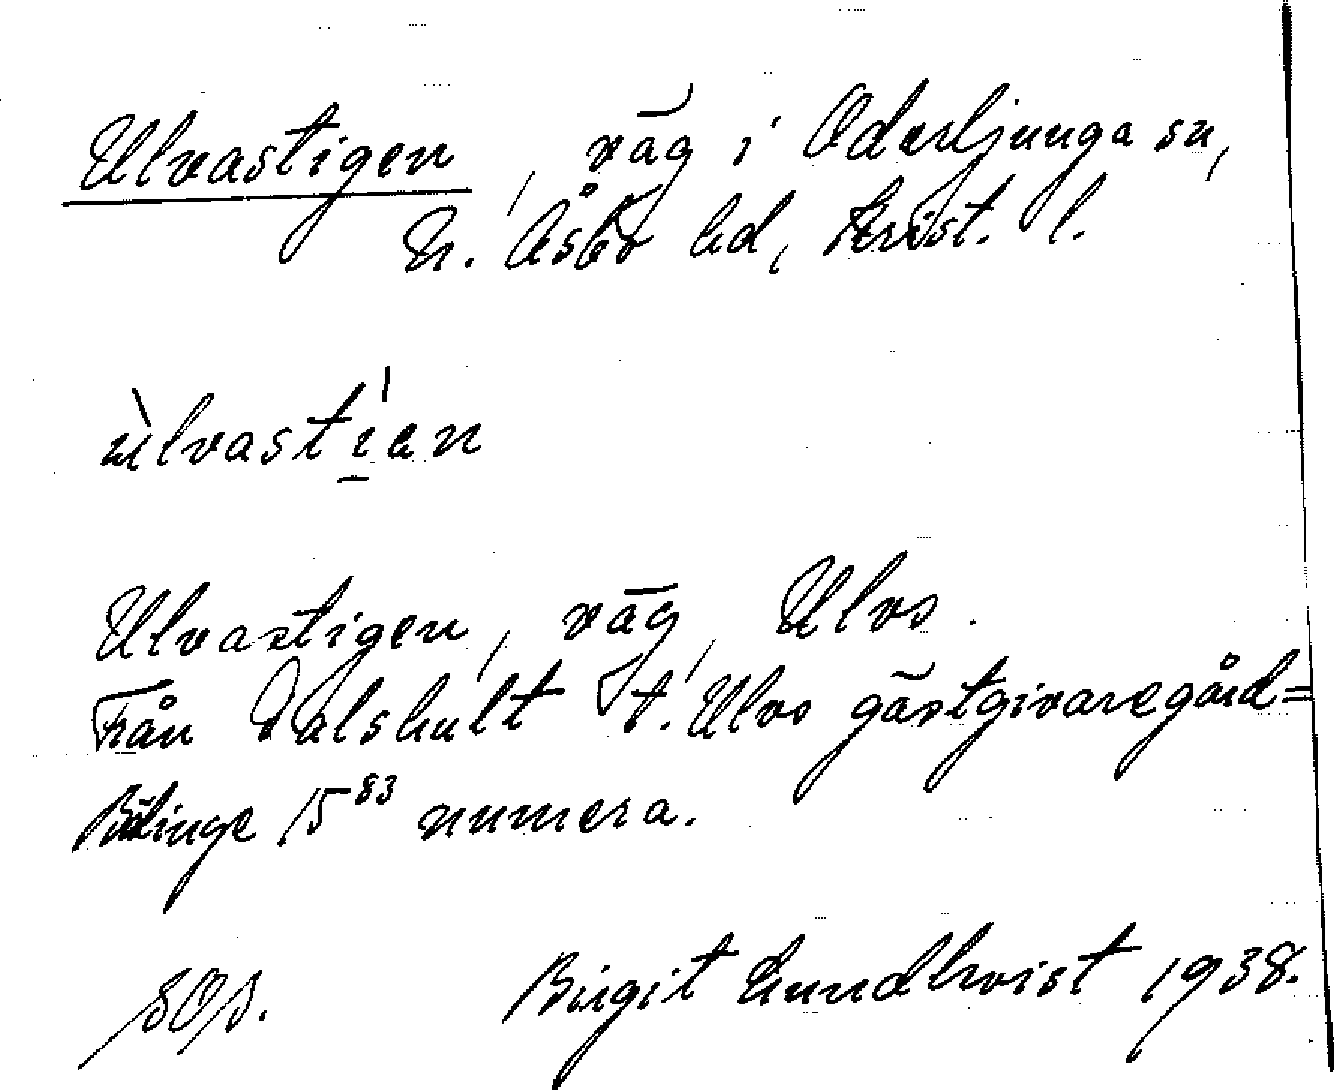 Ulvastigen, väg i Oderljunga sn,
N. Åsbo hd, Krist. l.
ùlvastían
Ulvastigen, väg, Ulvs.
Från Dalshult t. Ulvs gästgivaregård=
Bälinge 15⁸³ numera.
SOS.
Birgit Lundkvist 1938.